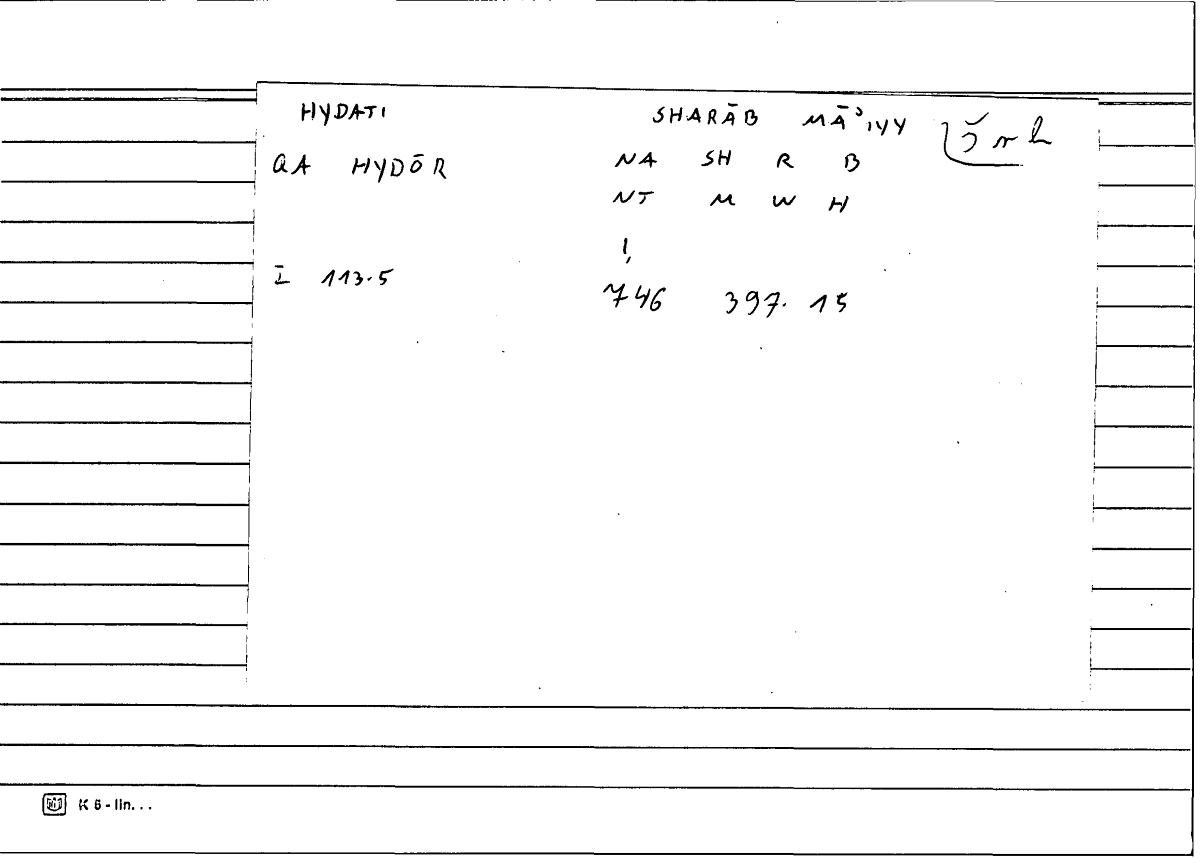 HYDATI SHARĀB MĀʾIYY
QA HYDŌR NA SH R B
NT M W H
!
I 113.5
746 397. 15
K 6 - lin. . .